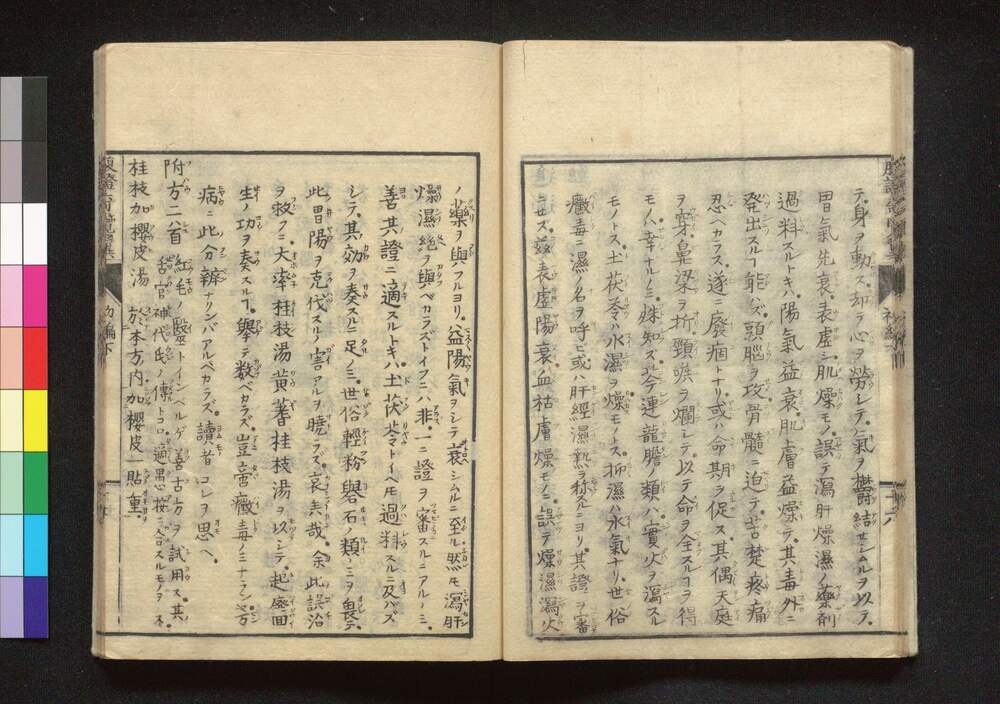 テ身ヲ動ス。却テ心ヲ勞レテ。氣ヲ欝結セシムルヲ以テ。
胃氣先衰。表虚シ肌燥モノ。誤テ瀉肝燥濕ノ藥剤
過料スルトキハ。陽氣益衰。肌膚益燥テ。其毒外ニ
発出スルヿ能ハズ。頭腦ヲ攻。骨髓ニ迫テ。苦楚疼痛
忍ベカラス。遂ニ廢痼トナリ。或ハ命期ヲ促ス。其偶天庭
ヲ穿。鼻梁ヲ折。頸ヲ爛シテ。以テ命ヲ全スルヿヲ得
モノハ。幸ナルノミ。殊知ズ。芩連龍膽ノ類ハ。實火ヲ瀉スル
モノトス。土茯苓ハ水濕ヲ燥モノトス。抑濕ハ水氣ナリ。世俗
黴毒ニ濕ノ名ヲ呼ヒ。或ハ肝經濕熱ヲ称スルニヨリ。其證ヲ審
ニセス。茲表虚陽衰。血枯膚燥モノニ。誤テ燥濕瀉火
ノ藥ヲ與フルヨリ。益陽氣ヲシテ衰シムルニ至ル。然モ瀉肝
燥濕絶ヲ與ベカラズトイフニハ非。一ニ證ヲ審スルニアルノミ。
善其證ニ適スルトキハ。土茯苓トイヘモ。過料スルニ及バズ
シテ。其効ヲ奏スルニ足ノミ。世俗輕粉礜石ノ類ニヲ畏テ
此胃陽ヲ克伐スルノ害アルヲ曉ラズ。哀哉。余此誤治
ヲ救フニ大率桂枝湯黄耆桂枝湯ヲ以シテ。起廢回
生ノ功ヲ奏スルヿ。擧テ数ベカラズ。豈啻黴毒ノミナランヤ。万
病ニ此分辨ナクンバアルベカラズ。讀者コレヲ思ヘ。
附方二首 紅毛ノ醫トインルゲ善古方ヲ試用ス。其
舌官神代氏ノ傳トコロ。適愚按ニ合スルモノヲ
桂枝加櫻皮湯 於本方内加櫻皮一貼重
初編下